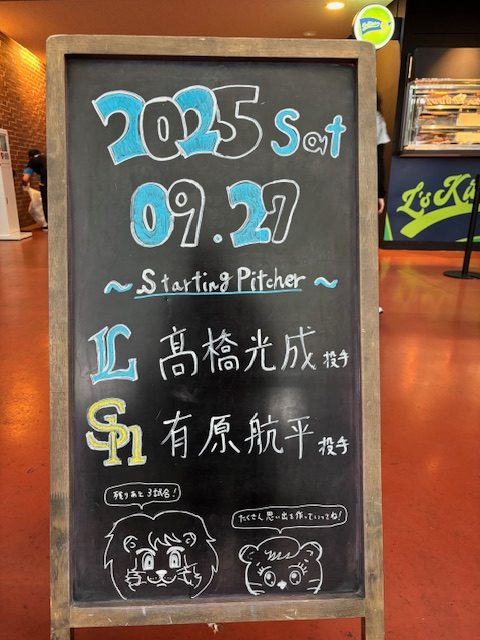 2025 Sat
09.27
~ Starting Pitcher ~
L 髙橋光成 投手
Sh 有原航平 投手
残りあと3試合!
たくさん思い出を作っていってね!
L's Ki